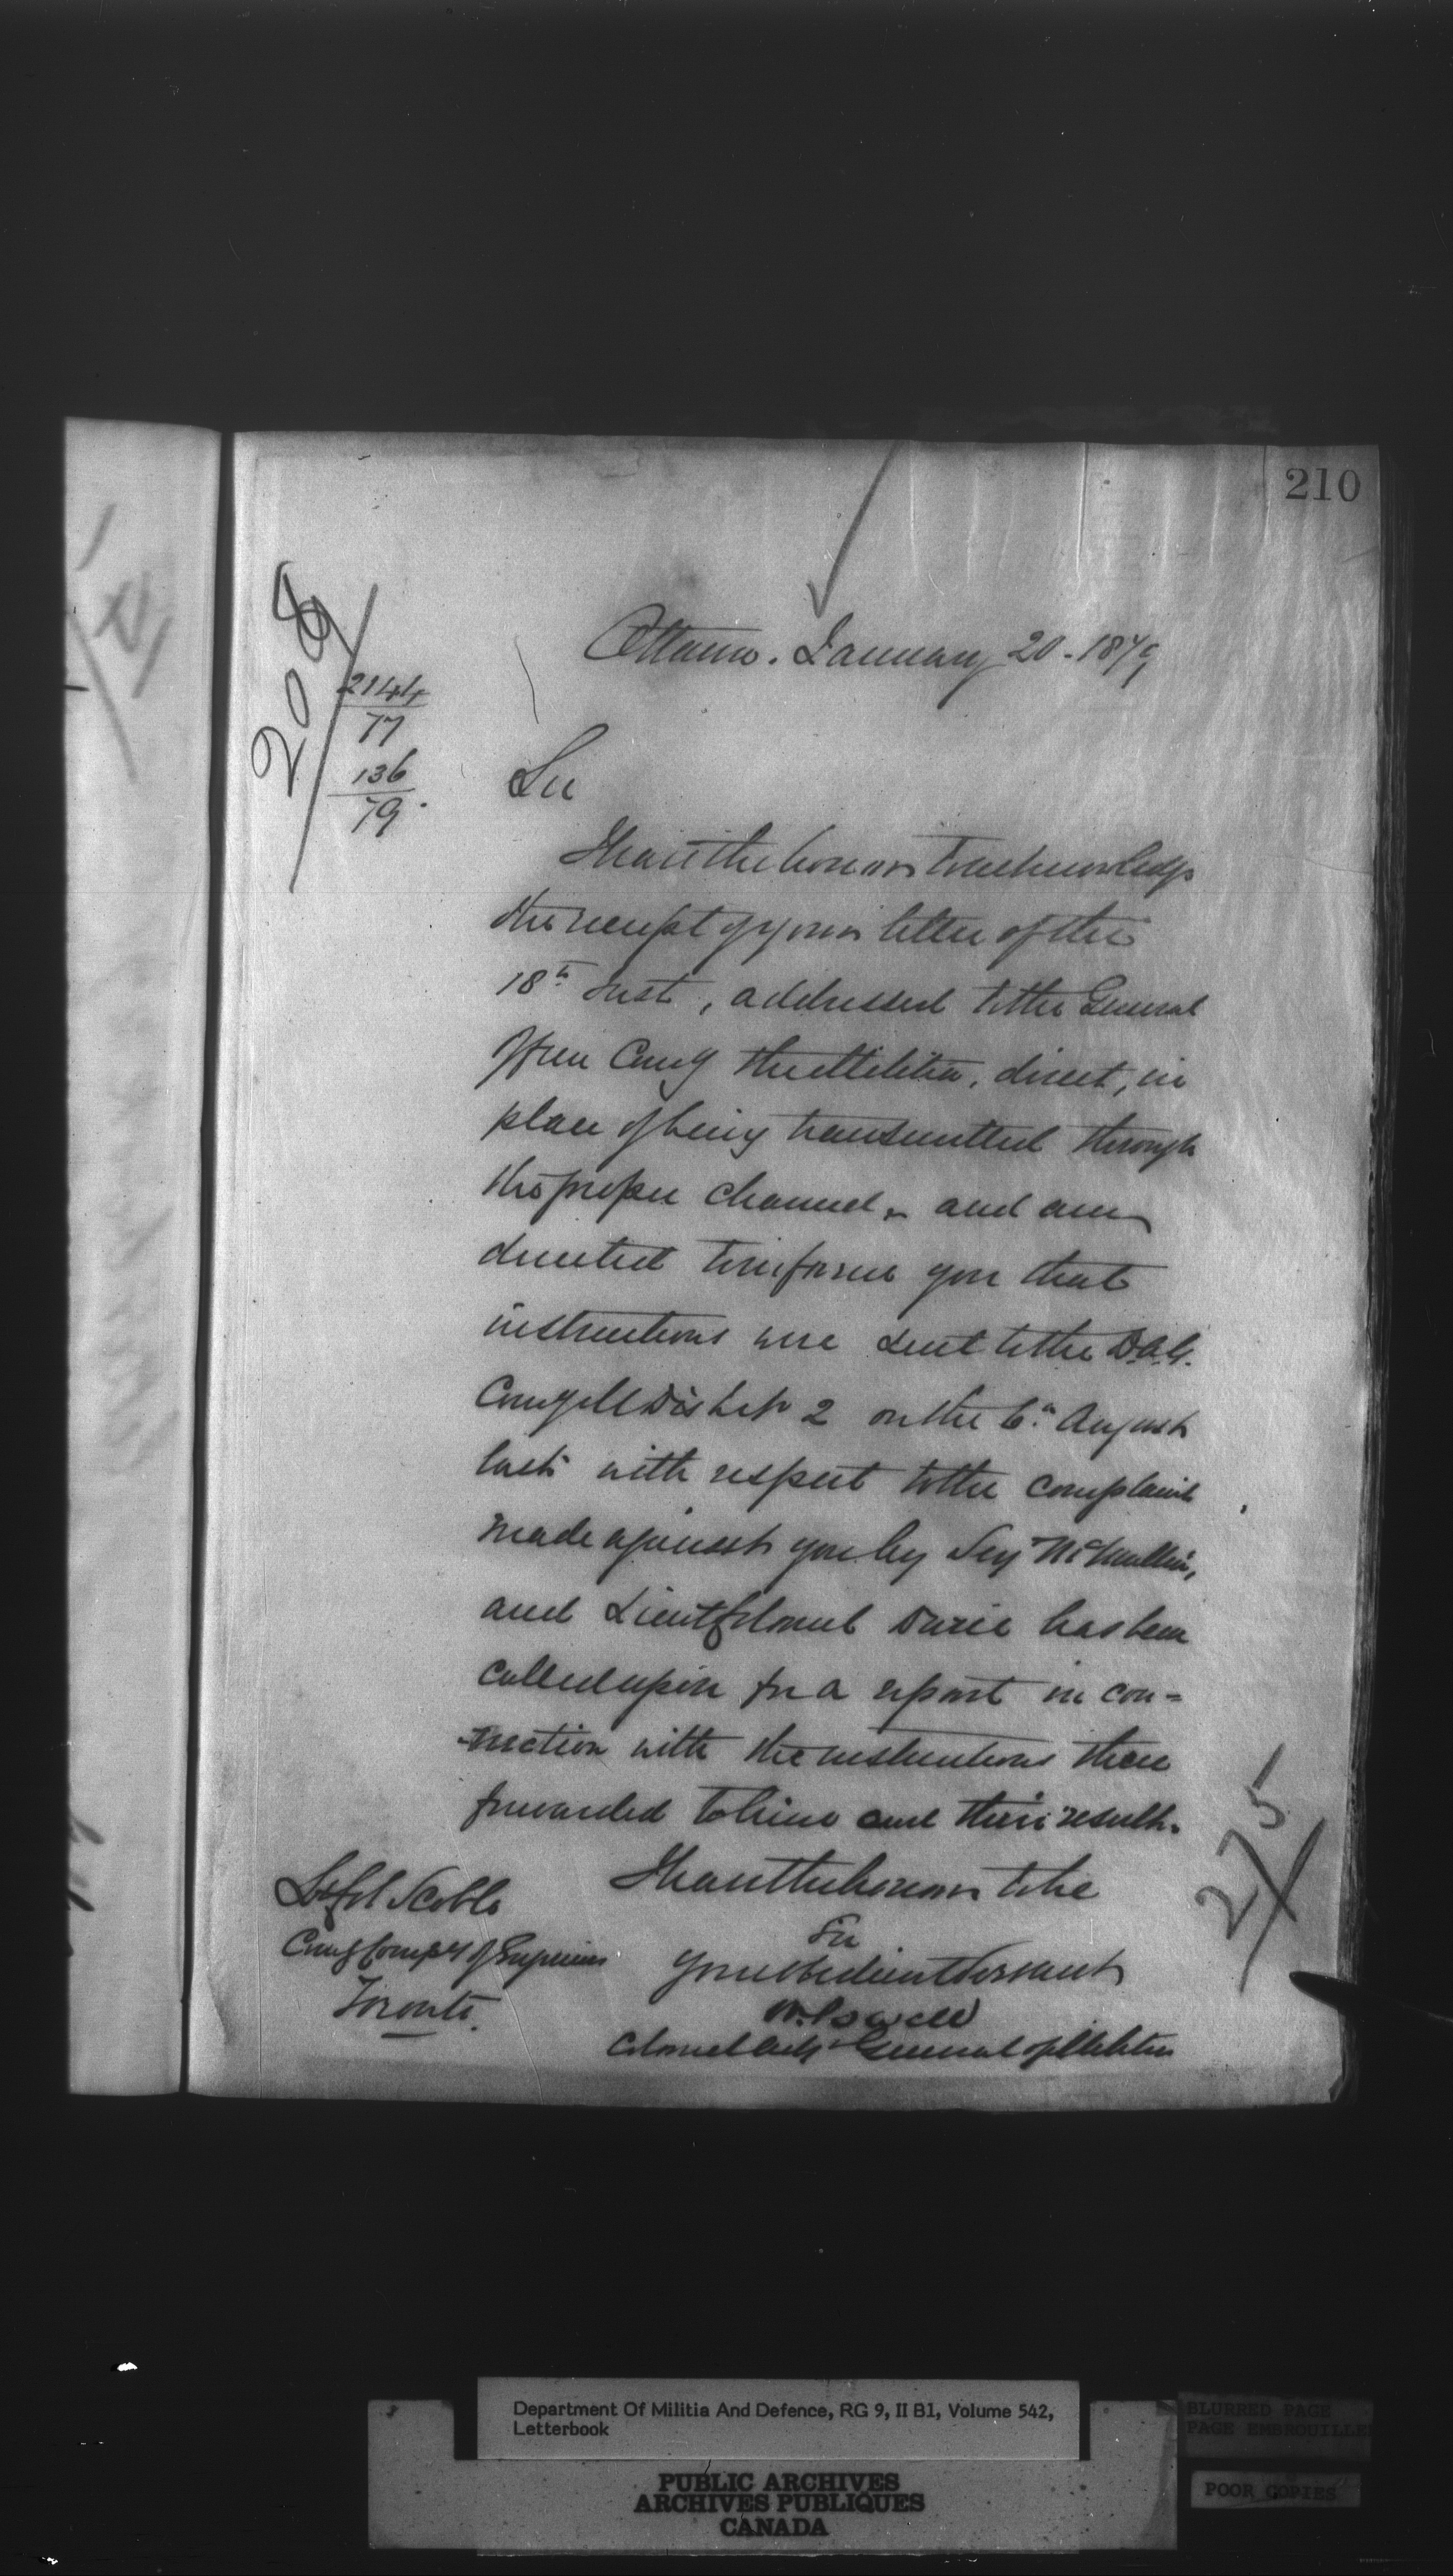 210
208
2144
77
136
79.
Ottawa. January 20-1879
Sir
I have the honour to acknowledge
the receipt of your letter of the
18th Inst, addressed to the General
Officer Comg the Militia, direct, in
place of being transmitted through
the proper channel, and am
directed to inform you that
instructions were sent to the D.A.G.
Comg Mil District 2 on the 6th August
last with respect to the complaint
made against you by Sergt
and Lieut Colonel Durie has been
called upon for a report in con=
nection with the instructions then
forwarded to him and their result.
I have the honour to be
Sir
Your obedient Servant
W. Powell
Colonel Adjt General of Militia
Lt Col Scoble
Comg Compy of Engineers
Toronto.
275
Department Of Militia And Defence, RG 9, II B1, Volume 542,
Letterbook
PUBLIC ARCHIVES
ARCHIVES PUBLIQUES
CANADA
BLURRED PAGE
PAGE EMBROUILLE
POOR COPIES